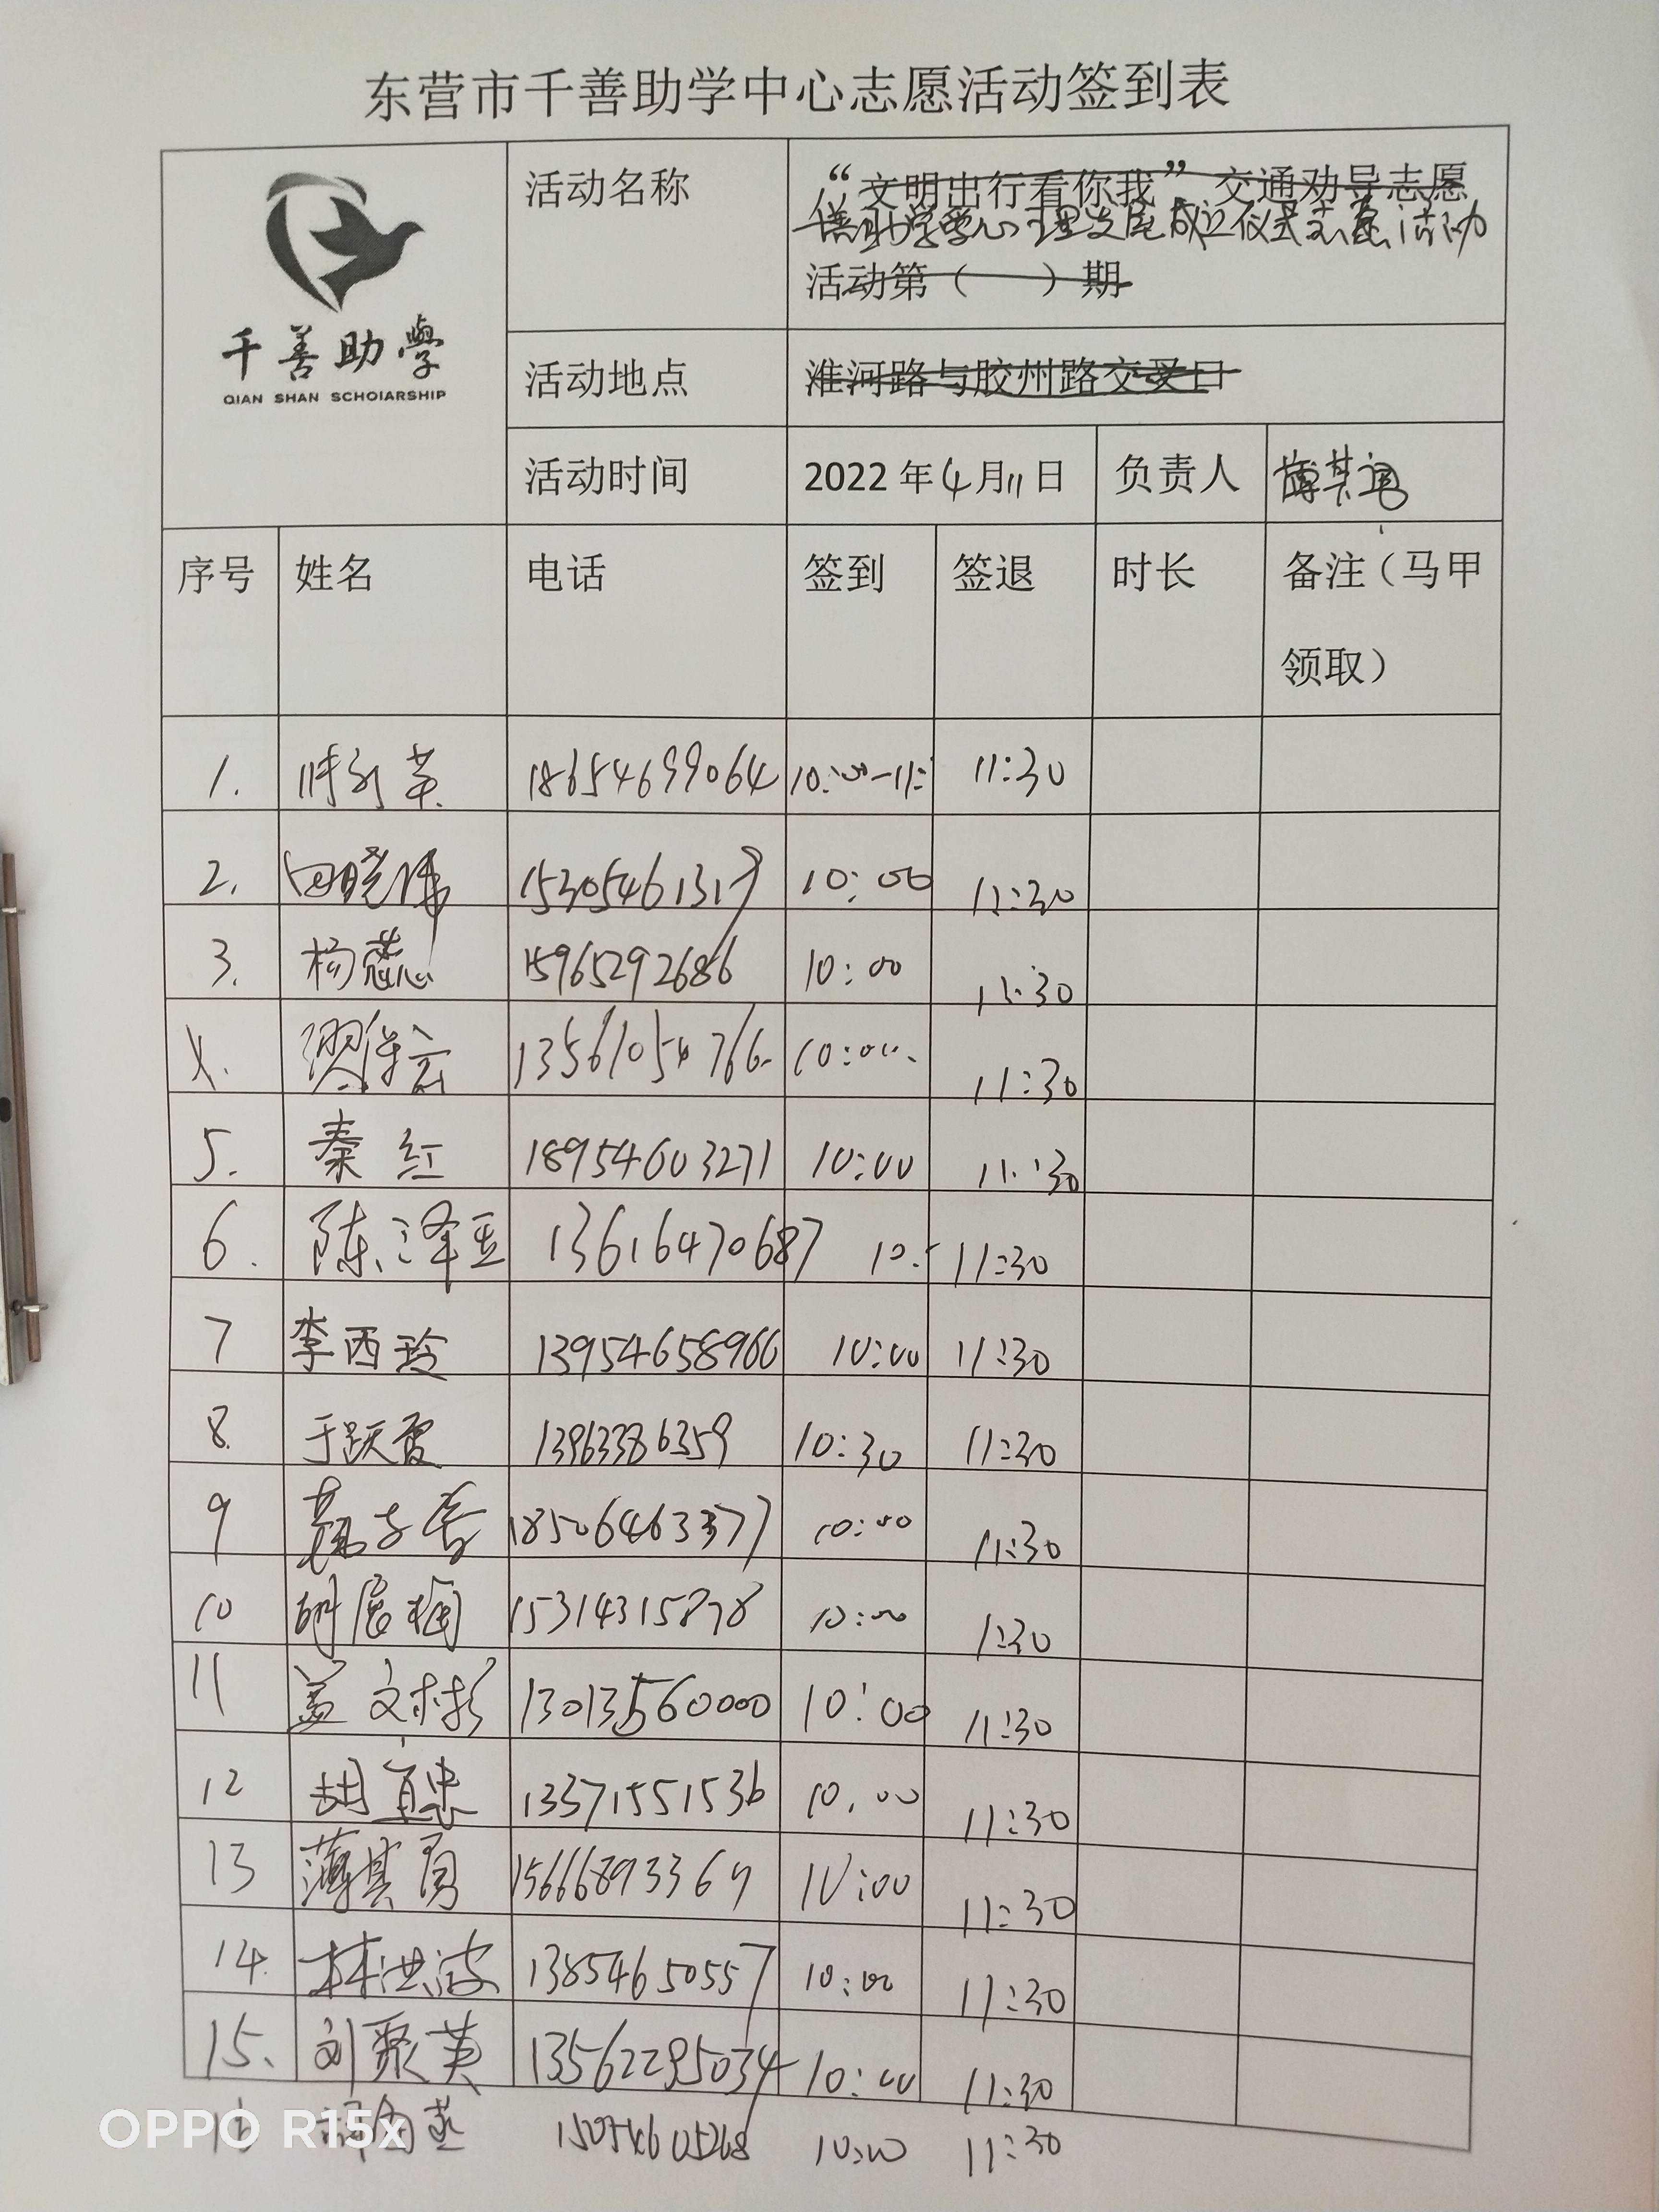 东营市千善助学中心志愿活动签到表
千善助學
QIAN SHAN SCHOIARSHIP
活动名称
“文明出行看你我”交通劝导志愿
成立仪式志愿活动
活动第（ ）期
活动地点
淮河路与胶州路交叉口
活动时间 2022年4月11日 负责人
序号 姓名 电话 签到 签退 时长 备注（马甲
领取）
1. 18654699064 10:00-11: 11:30
2. 田晓伟 15305461319 10:00 11:30
3. 杨蕊 15965292686 10:00 11:30
4. 13561054766 10:00 11:30
5. 秦红 18954603271 10:00 11:30
6. 陈泽亚 13616470687 10: 11:30
7 李西玲 13954658966 10:00 11:30
8. 于跃霞 13963386359 10:30 11:30
9 18506463377 10:00 11:30
10 15314315878 10:00 1:30
11 盖文彬 13013560000 10:00 11:30
12 胡宜忠 13371551536 10.00 11:30
13 薄其勇 15666893369 10:00 11:30
14. 林洪波 13854650557 10:00 11:30
15. 刘聚英 13562295034 10:00 11:30
16 15095460526 10:00 11:30
OPPO R15x